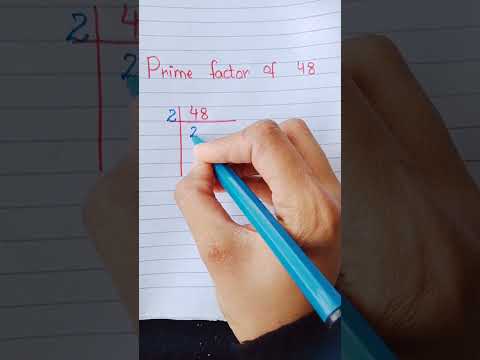 Prime factor of 48
2 48
2